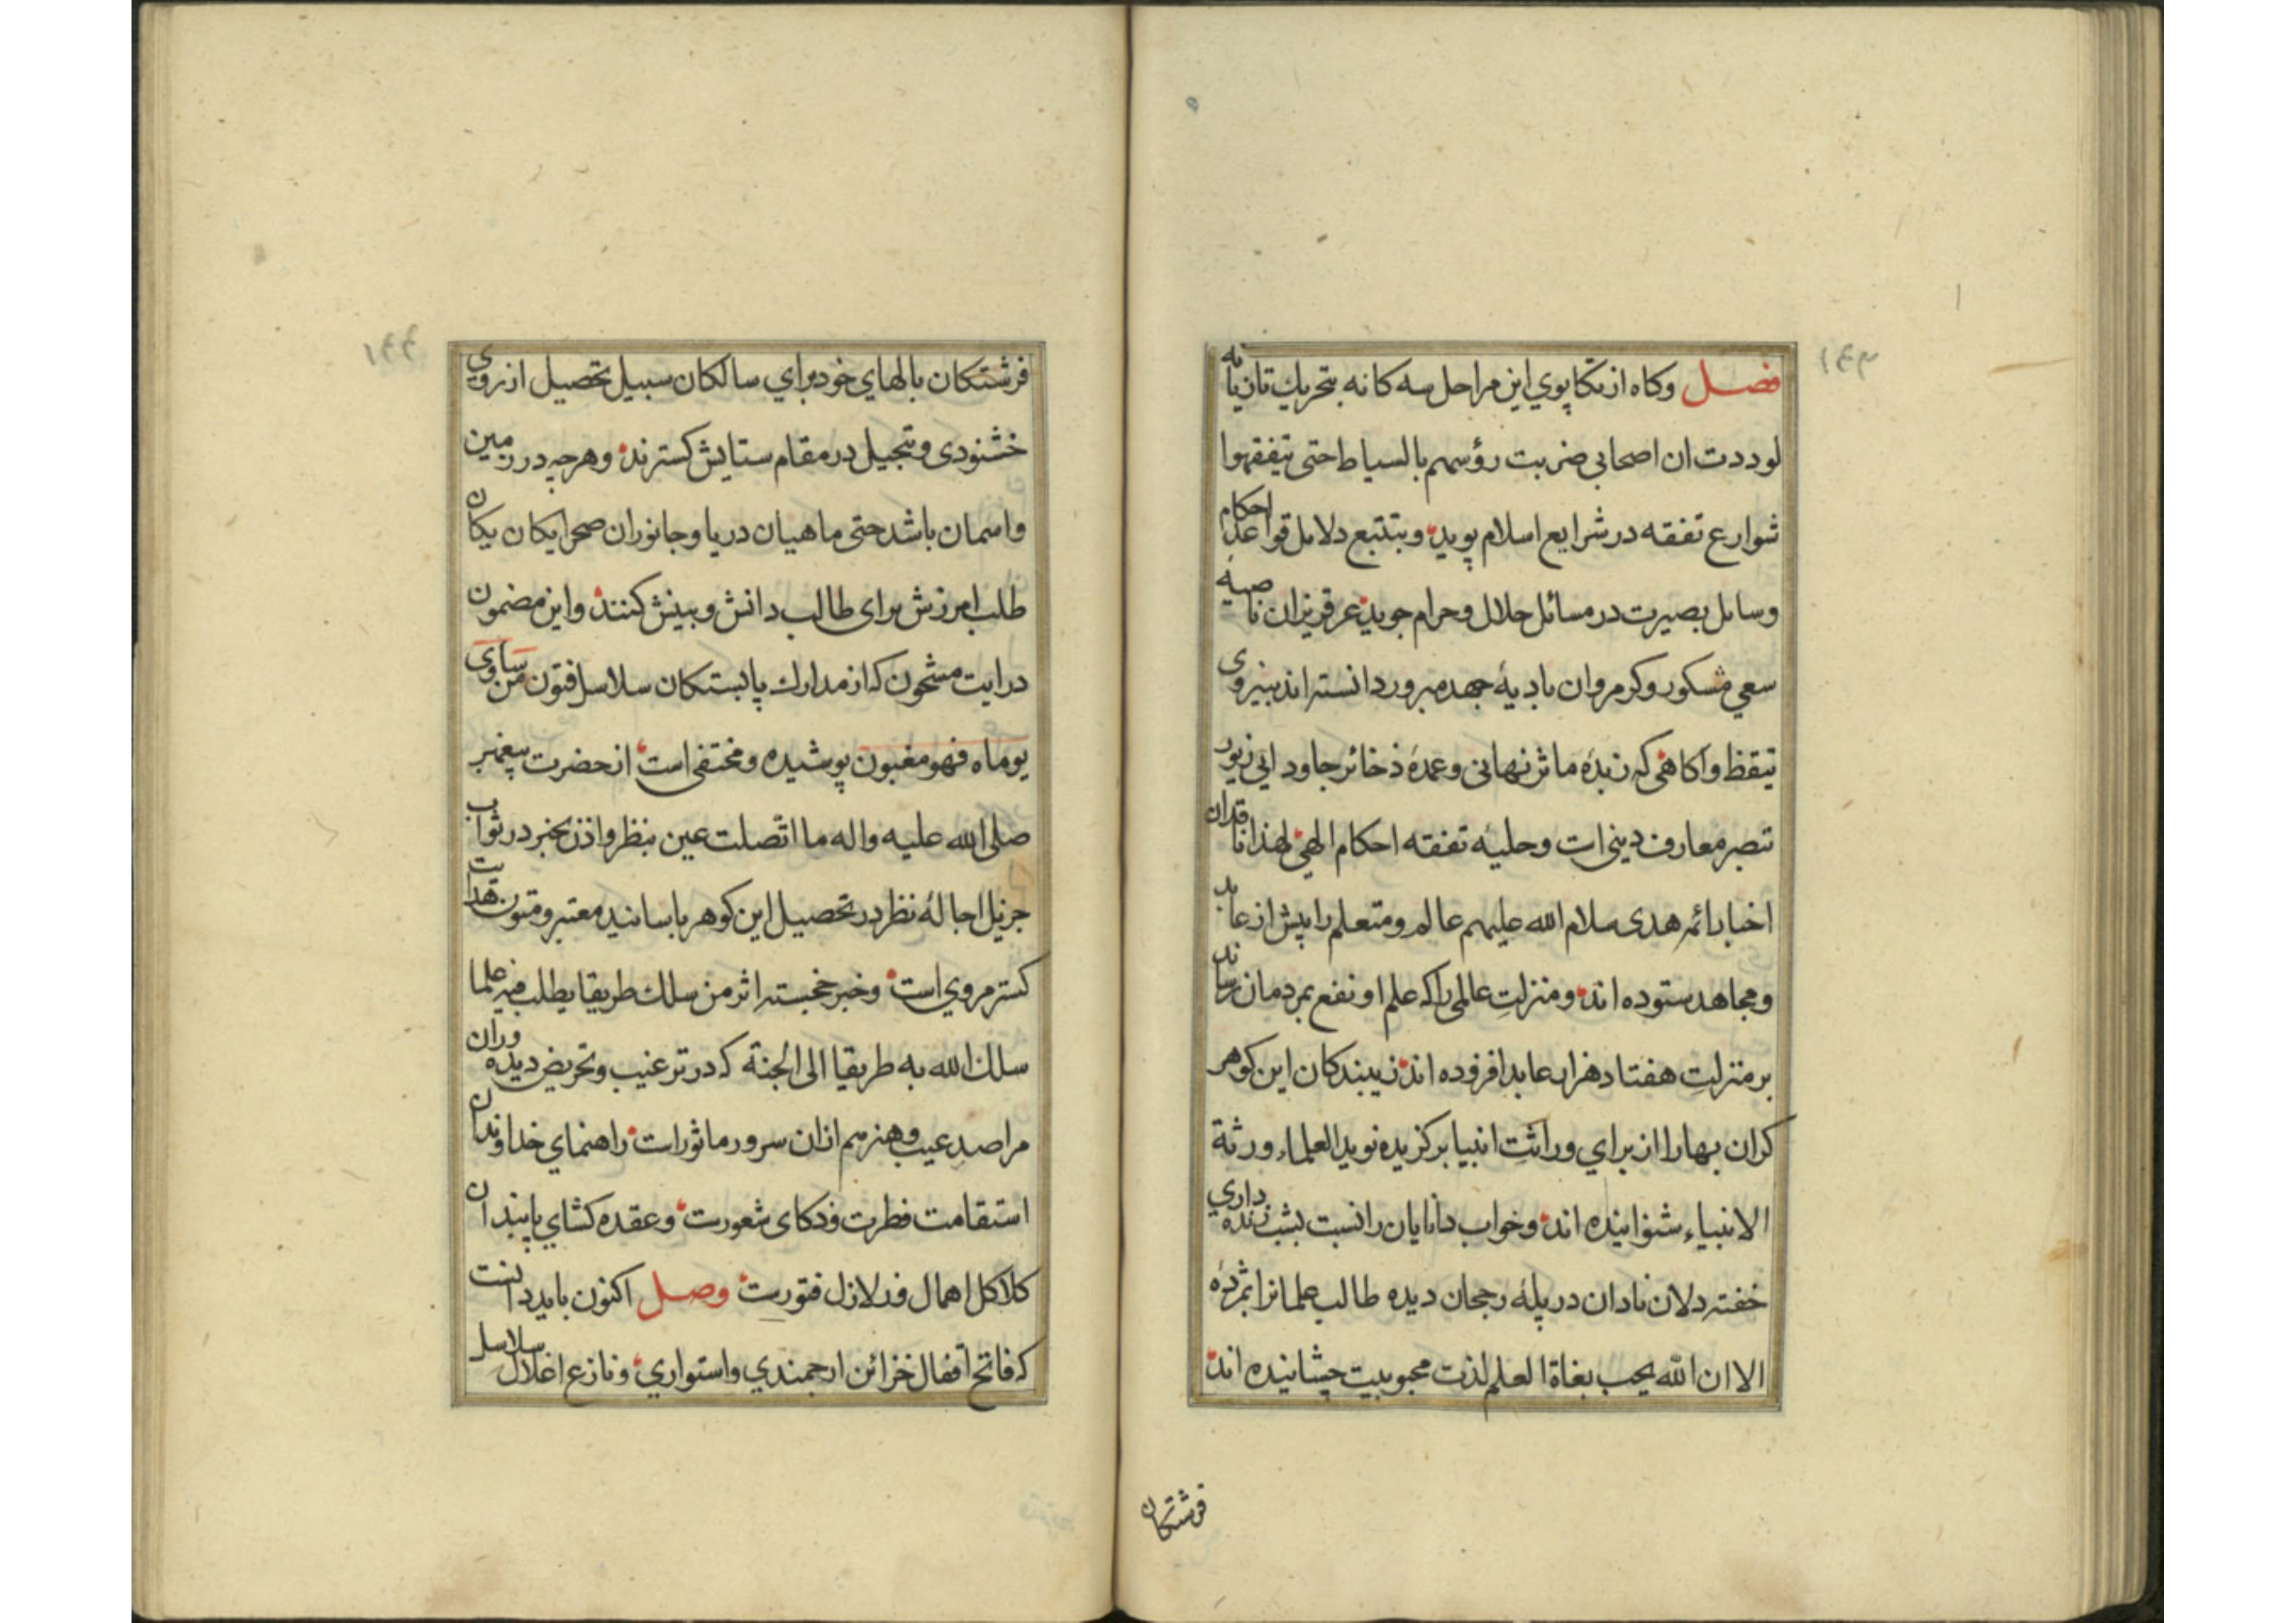 فصل وکاه ازتکاپوي این مراحل سه کانه بتحریك تازیانه
لوددت ان اصحابی ضربت رؤسهم بالسیاط حتی یتفقهوا
شوارع تفقه در شرایع اسلام پوید وبتتبع دلایل قواعد احکام
وسایل بصیرت در مسائل حلال وحرام جوید عرق ریزان ناصیه
سعي مشکور وکرم روان بادیهٔ جهد مبرور دانسته اند بنیروی
تیقظ واکاهی که زبدهٔ ماثر نهانی وعمدهٔ ذخائر جاودانی زیور
تبصر معارف دینی است وحلیهٔ تفقه احکام الهی لهذا ناقدان
اخبار ائمه هدی سلام الله علیهم عالم ومتعلم را پیش از عابد
ومجاهد ستوده اند ومنزلتِ عالمی را که علم او نفع بمردمان رساند
بر منزلتِ هفتاد هزار عابد افزوده اند زیبندکان این کوهر
کران بها را از براي وراثتِ انبیا برکزیده نوید العلماء ورثة
الانبیاء شنوانیده اند وخواب دانایان را نسبت بشب زنده داري
خفته دلان نادان در پلهٔ رجحان دیده طالب علمانرا بثمردهٔ
الا ان الله یحب بغاة العلم لذت محبوبیت چشانیده اند
فرشتکان
فرشتکان بالهاي خود براي سالکان سبیل تحصیل از روی
خشنودی وتبجیل در مقام ستایش کسترند وهرچه در زمین
واسمان باشد حتی ماهیان دریا وجانوران صحرا یکان یکان
طلب امرزش برای طالب دانش وبینش کنند واین مضمون
درایت مشحون که از مدارك پابستکان سلاسل فتون من ساوی
یوماه فهو مغبون پوشیده ومختفی است از حضرت پیغمبر
صلی الله علیه واله ما اتّصلت عین بنظر واذن بخبر در ثواب
جزیل اجالهٔ نظر در تحصیل این کوهر باسانید معتبر ومتون هدایت
کستر مروي است وخبر خجسته اثر من سلك طریقا یطلب فیه علما
سلك الله به طریقا الی الجنة که در ترغیب وتحریض دیده وران
مراصدِ عیب وهنر هم ازان سرور ماثور است راهنماي خداوندان
استقامت فطرت وذکای شعورست وعقده کشاي پابندان
کلاکل اهمال وزلازل فتورست وصل اکنون باید دانست
که فاتح اقفال خزائن ارجمندي واستواري ونازع اغلال سلاسل